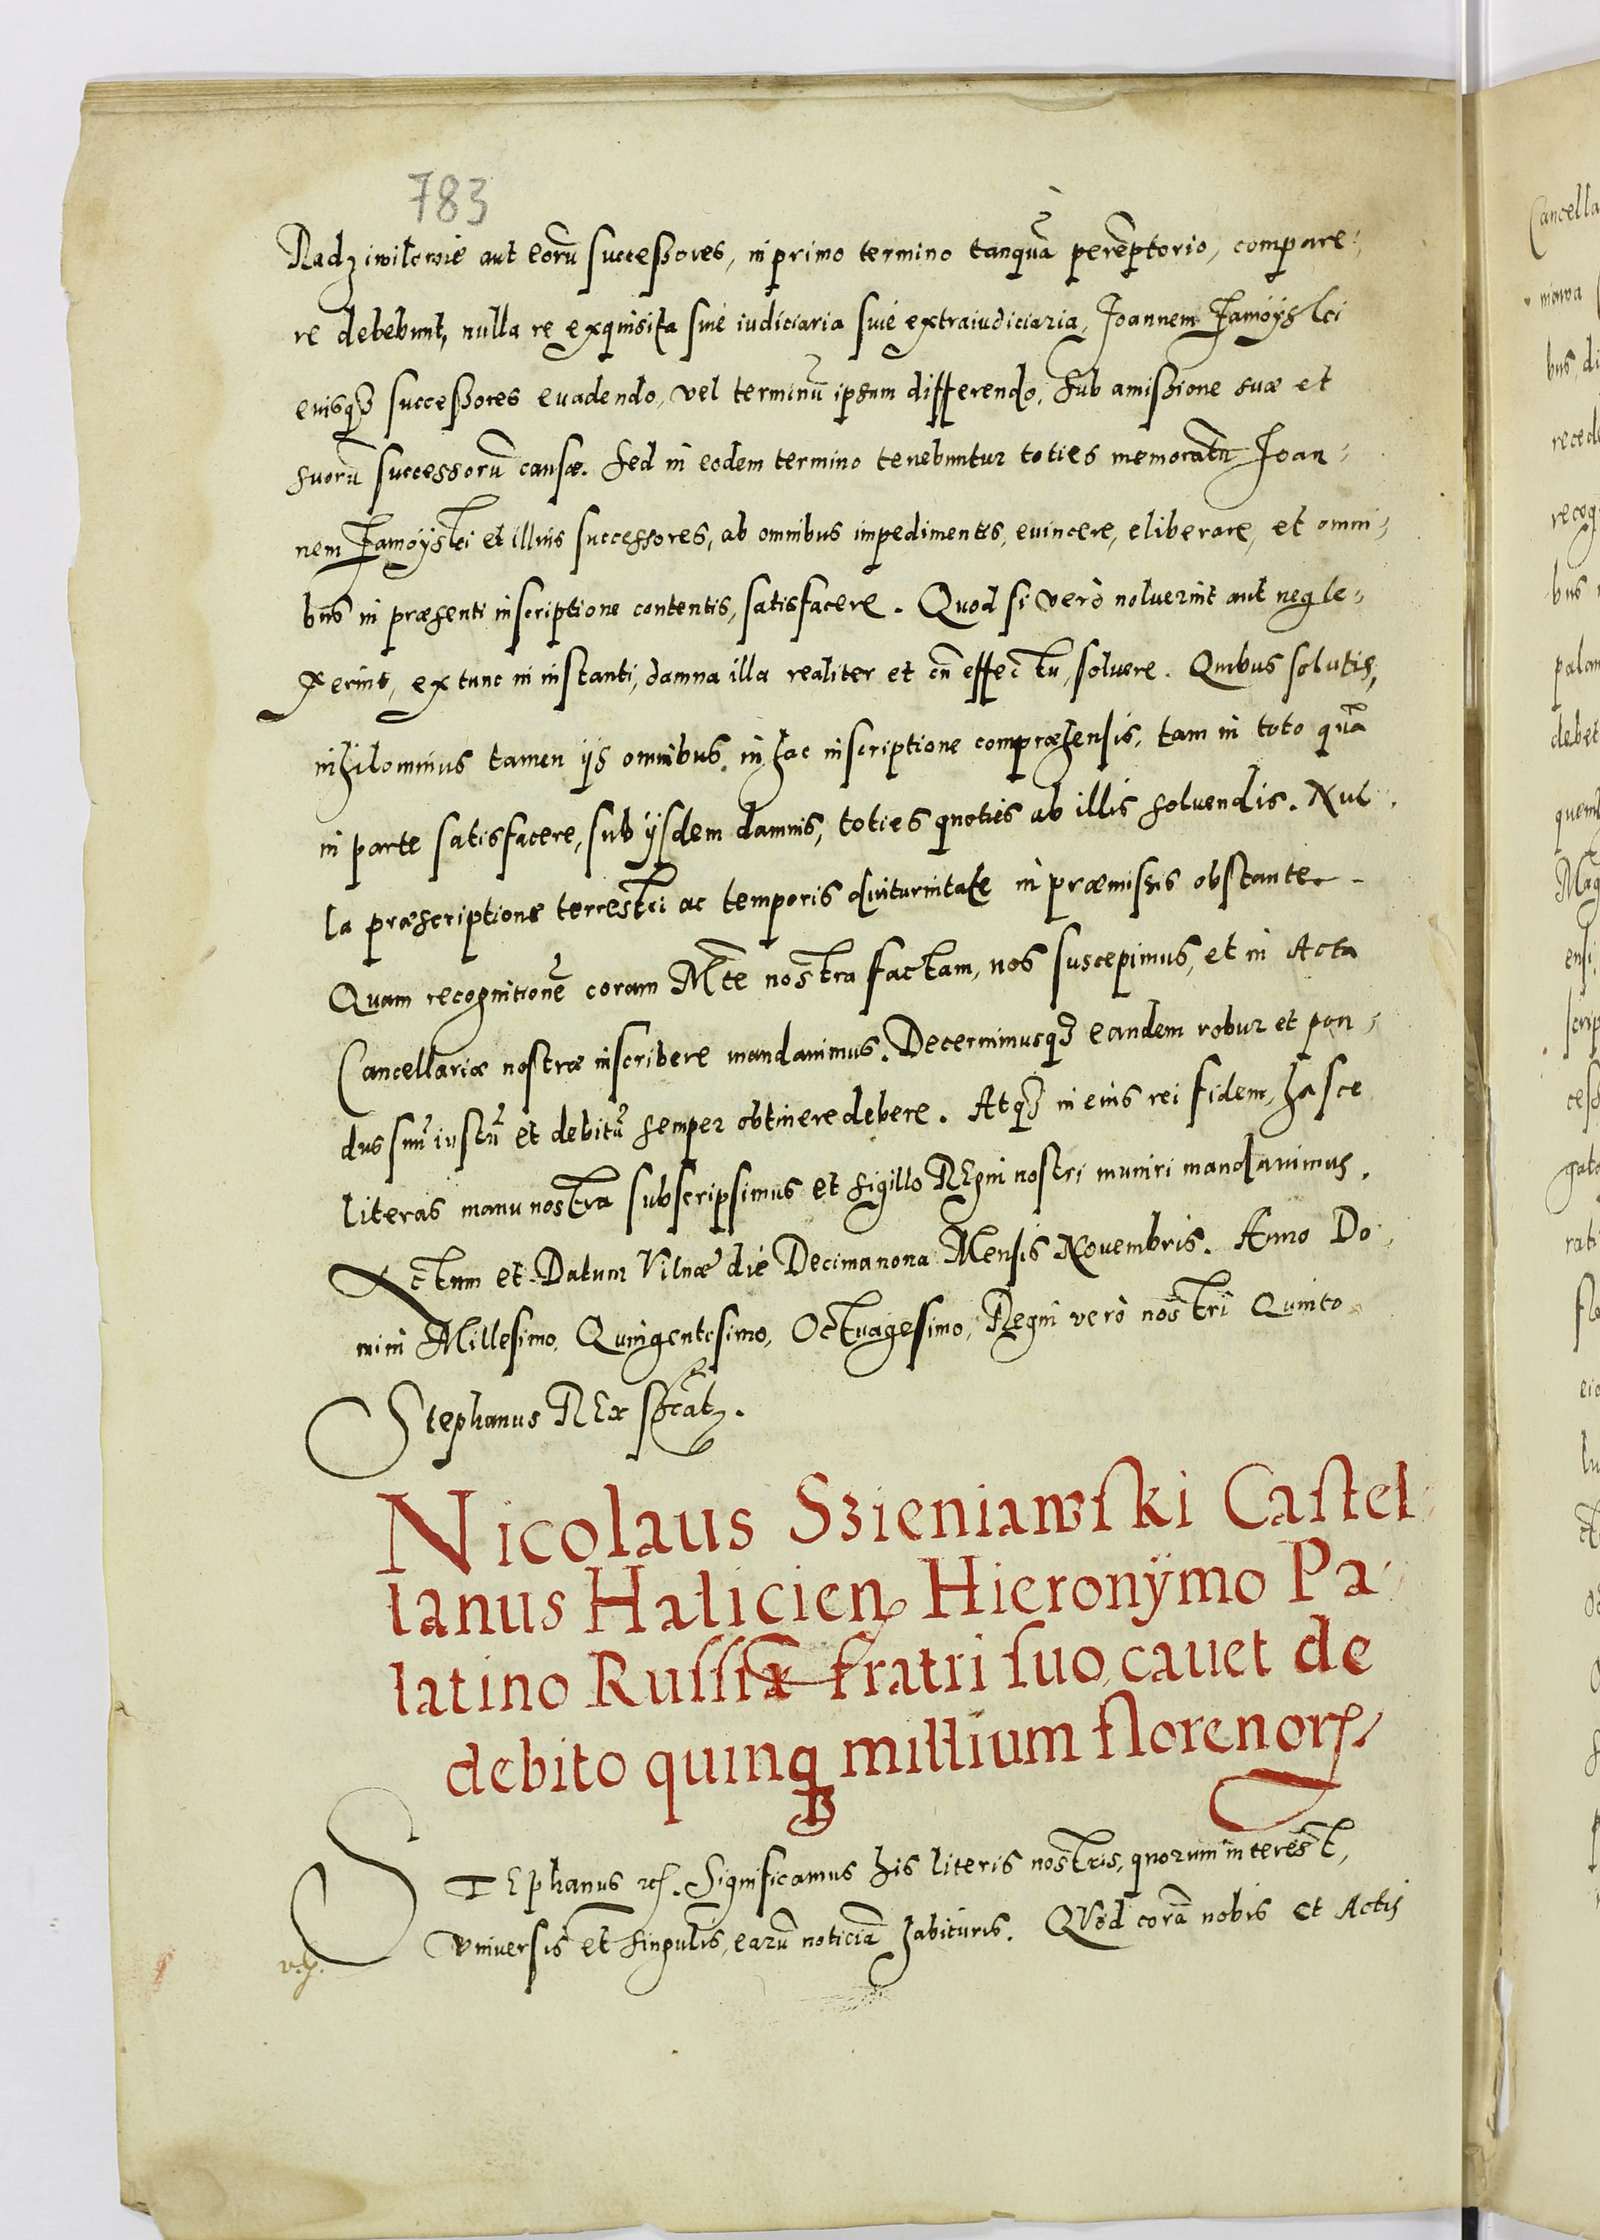 783
Radziwilowie aut eorũ successores, in primo termino tanquã perẽptorio, compare-
re debebunt, nulla re exquisita siue iudiciaria siue extraiudiciaria, Joannem Zamóyski
eiusq3 successores euadendo, vel terminũ ipsum differendo, sub amissione suæ et
suorũ successorũ causæ. Sed in eodem termino tenebuntur toties memoratũ Joan-
nem Zamoyski et illius successores, ab omnibus impedimentis, euincere, eliberare, et omni-
bus in præsenti inscriptione contentis, satisfacere. Quod si verò noluerint aut negle-
xerint, ex tunc in instanti, damna illa realiter et cũ effectu, soluere. Quibus solutis,
nihilominus tamen ijs omnibus, in hac inscriptione compræhensis, tam in toto quã
in parte satisfacere, sub ijsdem damnis, toties quoties ab illis soluendis. Nul-
la præscriptione terrestri ac temporis diuturnitate in præmissis obstante.
Quam recognitionẽ coram Mte nostra factam, nos suscepimus, et in Acta
Cancellariæ nostræ inscribere mandauimus. Decernimusq3 eandem robur et pon-
dus suũ iustũ et debitũ semper obtinere debere. Atq3 in eius rei fidem, hasce
literas manu nostra subscripsimus et sigillo REgni nostri muniri mandauimus.
Actum et Datum Vilnæ die Decimanona Mensis Nouembris. Anno Do-
mini Millesimo, Quingentesimo, Octuagesimo, Regni verò nostri Quinto
Stephanus REx
Nicolaus Szieniawski Castel-
lanus Halicien Hieronÿmo Pa-
latino Russiæ fratri suo, cauet de
debito quinq3 millium florenorꝝ
STEphanus Significamus his literis nostris, quorum interest,
vniuersis et singulis, earũ noticiã habituris. QVod corã nobis et Actis